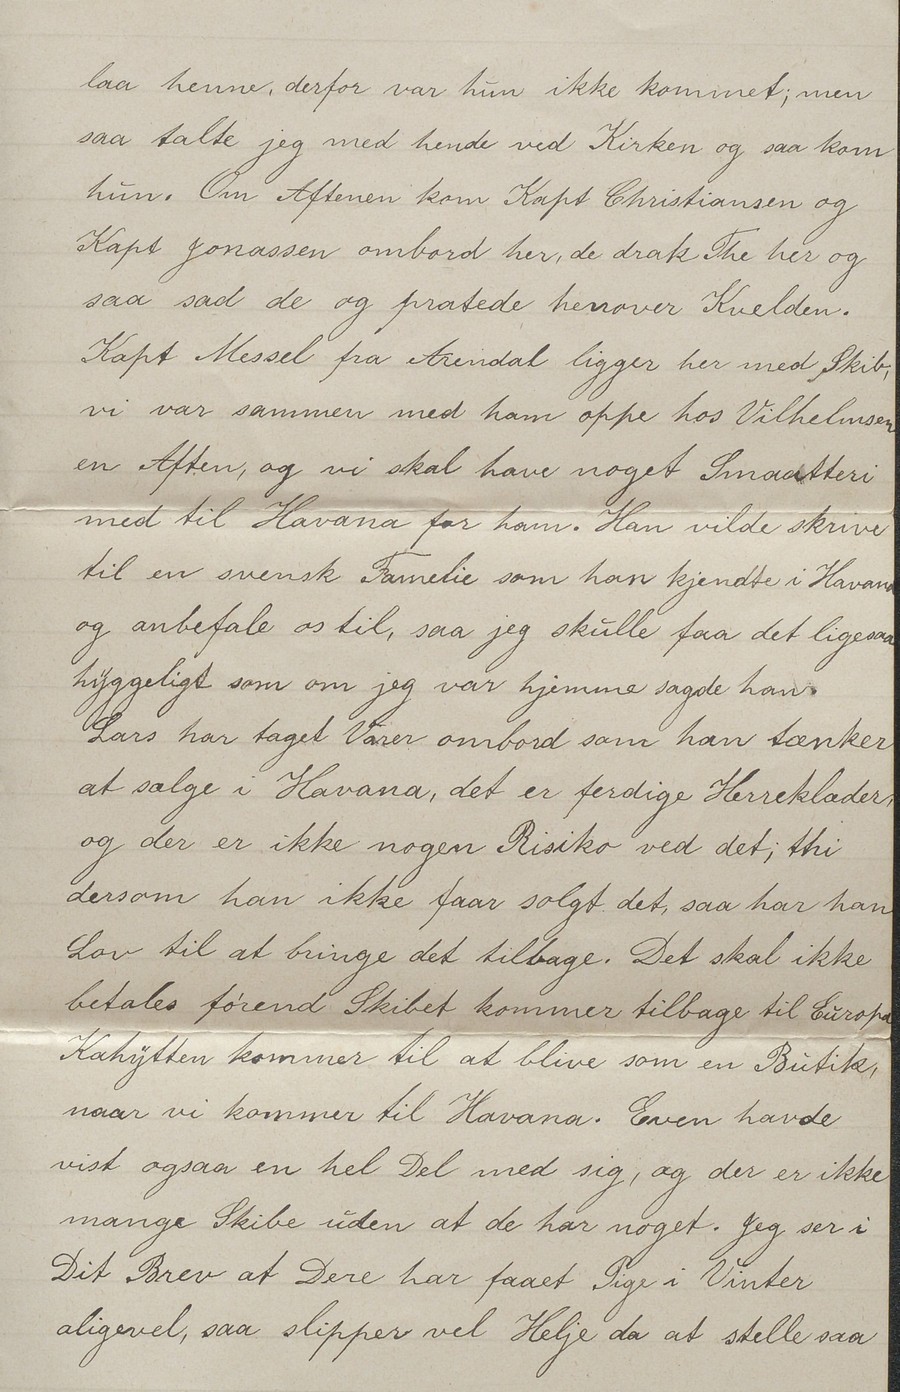 laa henne, derfor var hun ikke kommet; men
saa talte jeg med hende ved Kirken og saa kom
hun. Om Aftenen kom Kapt Christiansen og
Kapt Jonassen ombord her, de drak The her og
saa sad de og pratede henover Kvelden.
Kapt Messel fra Arendal ligger her med Skib,
vi var sammen med ham oppe hos Vilhelmsen
en Aften, og vi skal have noget Smaatteri
med til Havana for ham. Han vilde skrive
til en svensk Famelie som han kjendte i Havana
og anbefale os til, saa jeg skulle faa det ligesaa
hyggeligt som om jeg var hjemme sagde han.
Lars har taget Varer ombord som han tænker
at sælge i Havana, det er ferdige Herreklæder,
og der er ikke nogen Risiko ved det; thi
dersom han ikke faar solgt det, saa har han
Lov til at bringe det tilbage. Det skal ikke
betales førend Skibet kommer tilbage til Europa
Kahytten kommer til at blive som en Butik,
naar vi kommer til Havana. Even havde
vist ogsaa en hel Del med sig, og der er ikke
mange Skibe uden at de har noget. Jeg ser i
Dit Brev at Dere har faaet Pige i Vinter
aligevel, saa slipper vel Helje da at stelle saa